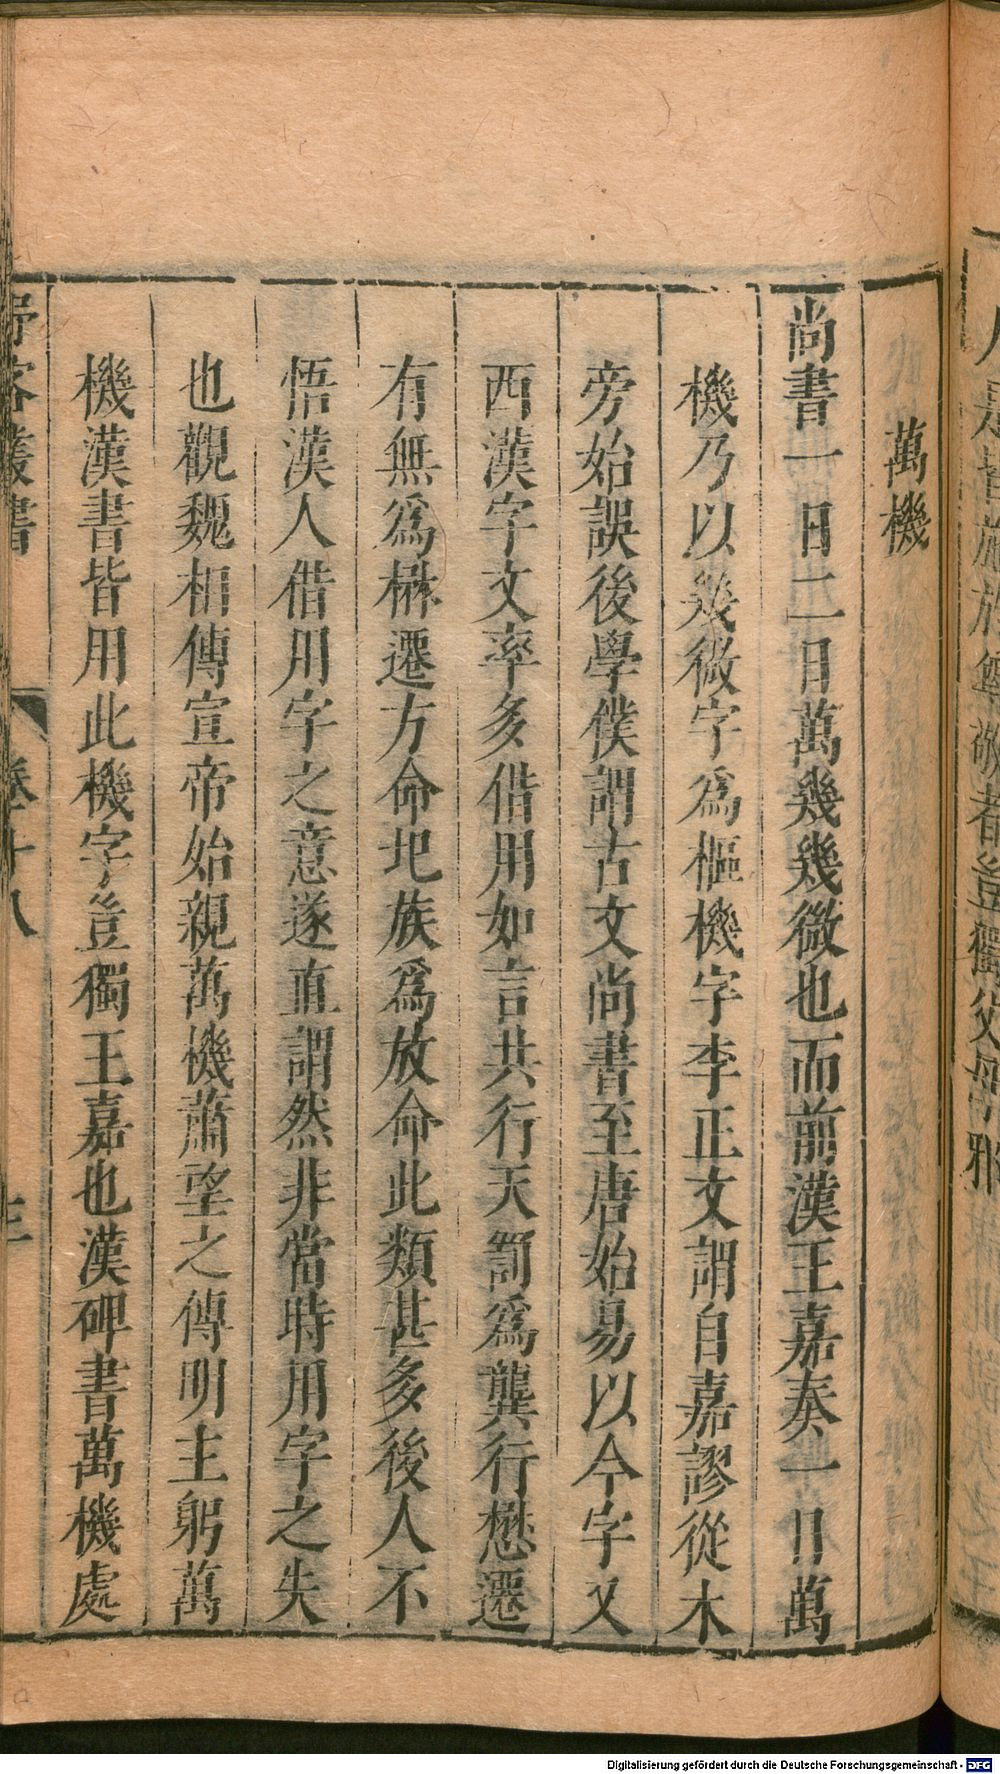 萬機
尚書一日二日萬幾幾微也而前漢王嘉奏一日萬
機乃以幾微字爲樞機字李正文謂自嘉謬從木
旁始誤後學僕謂古文尚書至唐始易以今字又
西漢字文率多偕用如言共行天罰爲龔行懋遷
有無爲楙遷方命圯族爲放命此類甚多後人不
悟漢人借用字之意遂直謂然非當時用字之失
也觀魏相傳宣帝始親萬機蕭望之傳明主躬萬
機漢書皆用此機字豈獨王嘉也漢碑書萬機處
野客叢書 卷十八 三
Digitalisierung gefördert durch die Deutsche Forschungsgemeinschaft - DFG